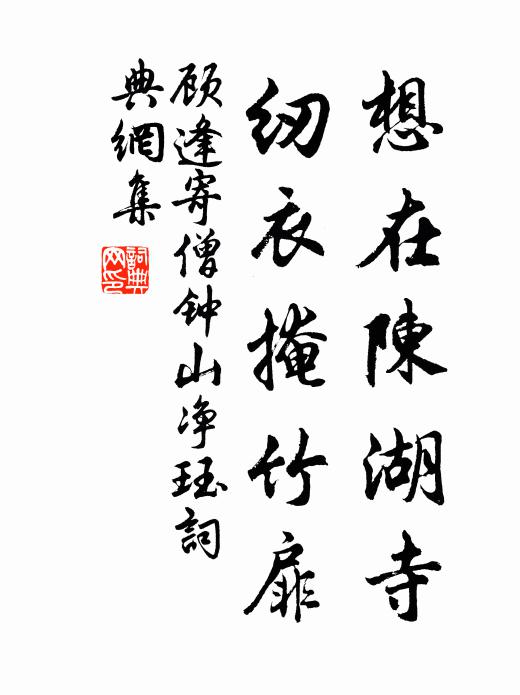 想在陳湖寺
纫衣掩竹扉
顾逢寄僧钟山净珏詞
典網集
詞典网印